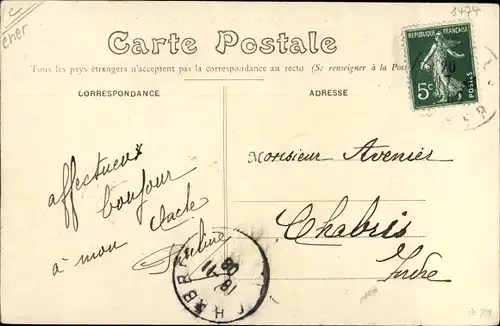 Cher
1474
Carte Postale
Tous les pays étrangers n'acceptent pas la correspondance au recto (Se renseigner à la Post
REPUBLIQUE FRANÇAISE
5c
POSTES
CORRESPONDANCE
ADRESSE
affectueux
bonjour
à mon
Pauline
Monsieur Avenier
Chabris
Indre